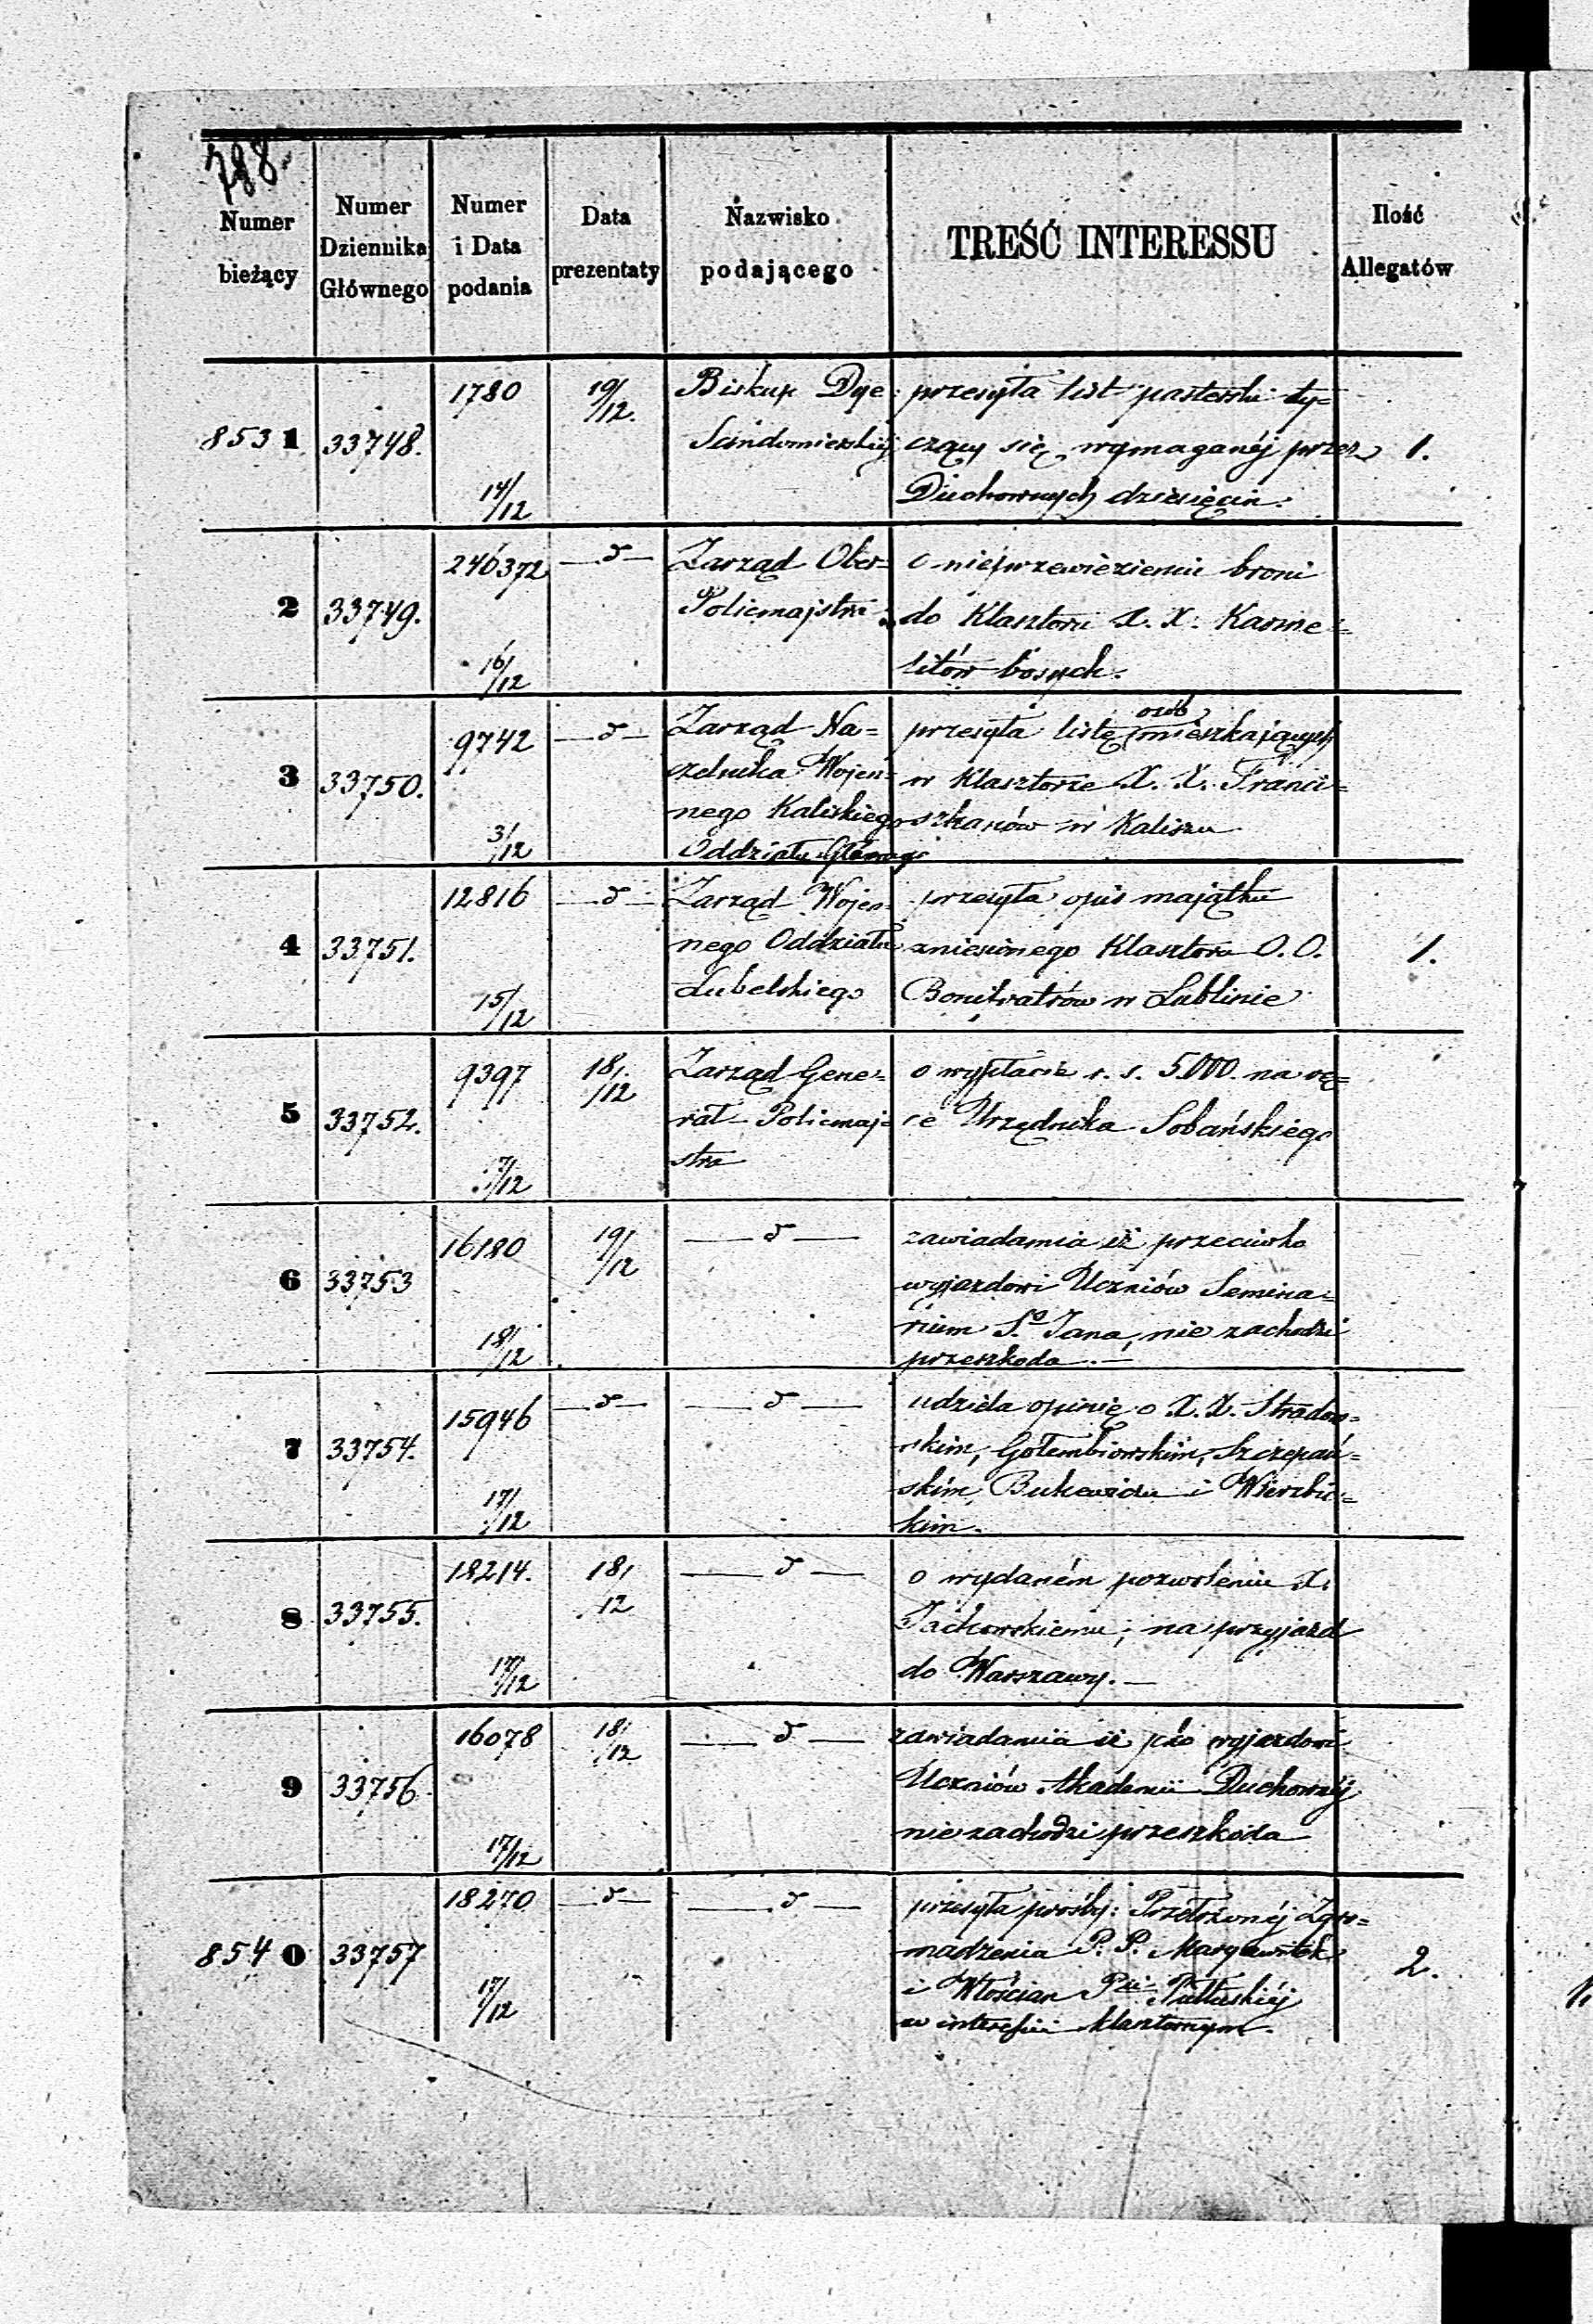 788.
Numer bieżący
Numer Dziennika Głównego
Numer i Data podania
Data prezentaty
Nazwisko podającego
TREŚĆ INTERESSU
Ilość Allegatów
8531 33748. 1780 14/12 19/12.
Biskup Dye:
Sandomierskiej
przesyła list pasterski ty=
czący się wymaganéj przez
Duchownych dziesięcin.
1.
2 33749. 246372 16/12 —d—
Zarząd Ober=
Policmajstra
o nieprzewiezieniu broni
do Klasztoru X. X. Karme=
litów bosych.
3 33750. 9742 3/12 —d—
Zarząd Na=
czelnika Wojen=
nego Kaliskiego
Oddziału Głównego
przesyła listę osób mieszkających
w Klasztorze X. X. Franci=
szkanów w Kaliszu
4 33751. 12816 15/12 —d—
Zarząd Wojen=
nego Oddziału
Lubelskiego
przesyła opis majątku
zniesionego Klasztoru O. O.
Bonifratrów w Lublinie
1.
5 33752. 9397 7/12 18/12
Zarząd Gene=
rał Policmaj=
stra
o wypłacie r. s. 5.000. na rę=
ce Urzędnika Sobańskiego
6 33753 16180 18/12 19/12 —d—
zawiadamia iż przeciwko
wyjazdowi Uczniów Semina=
rium S.º Jana, nie zachodzi
przeszkoda.—
7 33754. 15946 17/12 —d— —d—
udziela opinię o X. X. Stradom=
skim, Gołembiowskim, Szczepań=
skim, i Wierzbic=
kim.
8 33755. 18214. 17/12 18/12 —d—
o wydaném pozwoleniu X.
Jackowskiemu; na przyjazd
do Warszawy.—
9 33756. 16078 17/12 18/12 —d—
zawiadamia iż pko wyjazdowi
Uczniów Akademii Duchownéj
nie zachodzi przeszkoda
8540 33757 18270 17/12 —d— —d—
przesyła prośby: Przełożonéj Zgro=
madzenia P. P.
i Włościan Pułtuskiéj
w interesie klasztornym.
2.